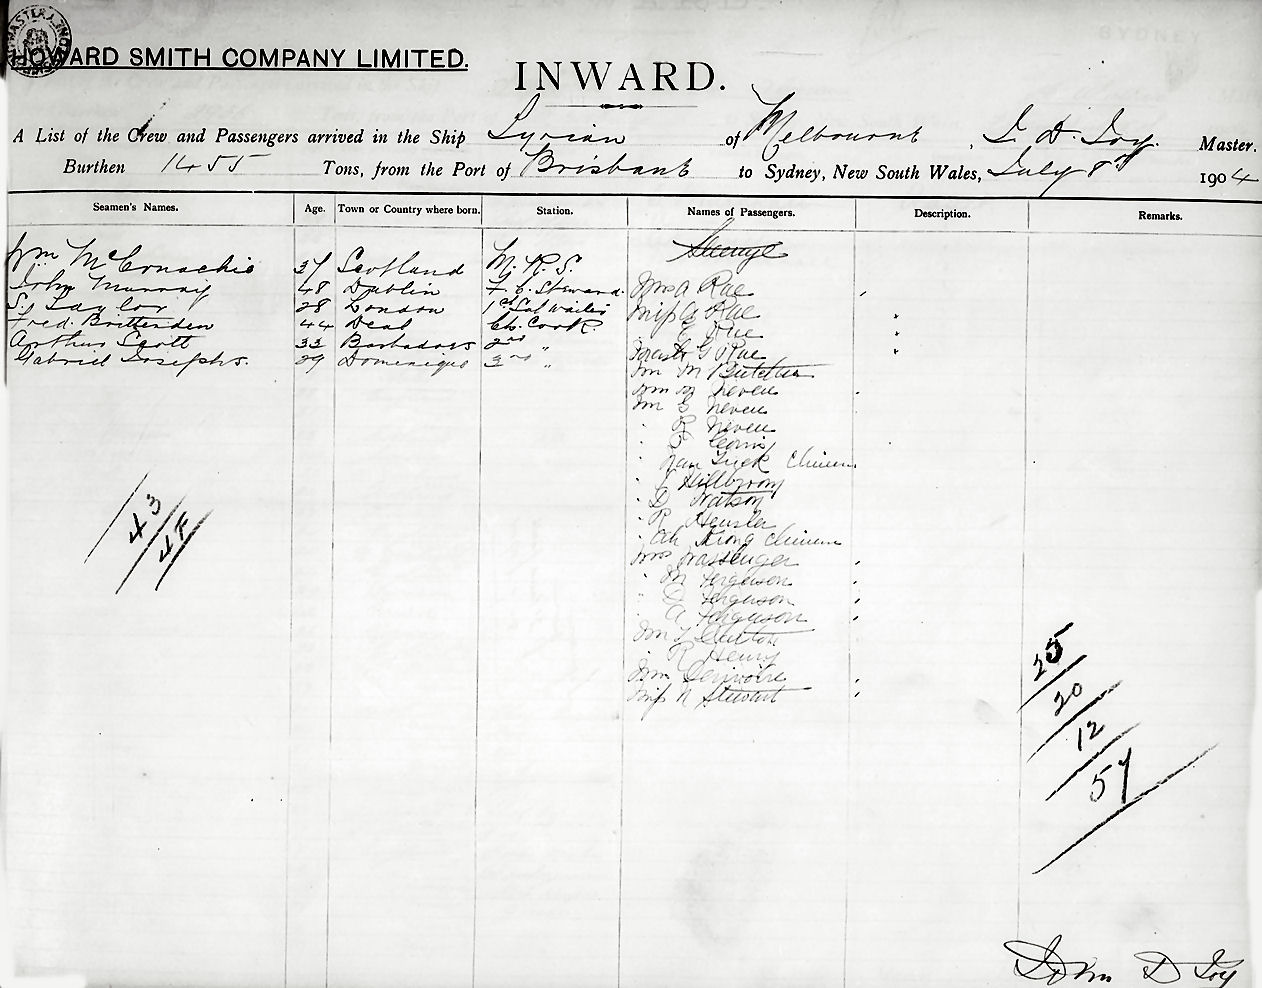 HOWARD SMITH COMPANY LIMITED.
INWARD.
A List of the Crew and Passengers arrived in the Ship Syrian of Melbourne, Master.
Burthen 1455 Tons, from the Port of Brisbane to Sydney, New South Wales, July 8th 1904
Seamen's Names. Age. Town or Country where born. Station. Names of Passengers. Description. Remarks.
Steerage
Wm McConachie 37 Scotland M. R. S.
John Murray 48 Dublin F. C. Steward. Mrs A Rae
Sy Taylor 28 London 1st Sal Waiter Miss A Rae
Fred. Brittenden 44 Deal Ch. Cook. E Rae
Arthur Scott 33 Barbadoes 2nd " Master G Rae
Gabriel Josephs. 29 Dominique 3rd " Mr M Butcher
Mrs M Neven
Mr G Neven
" R Neven
" Lewis
" Chinese
"
" D Watson
" R Hensler
" Ah Kong Chinese
Mrs Wassluger
" M Ferguson
" Ferguson
" A Ferguson
Mr
" R Henry
Mrs
Miss N Stewart
43
4F
25
20
12
57